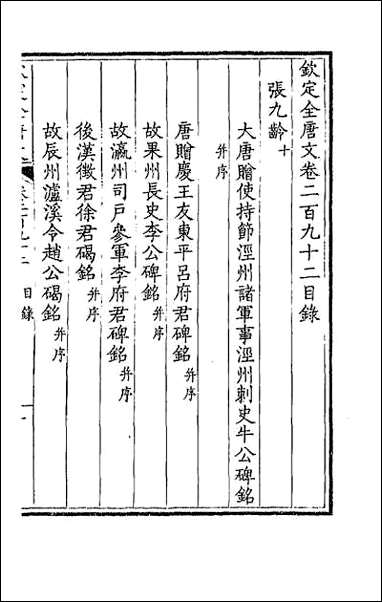 欽定全唐文卷二百九十二目錄
張九齡十
大唐贈使持節涇州諸軍事涇州刺史牛公碑銘
并序
唐贈慶王友東平呂府君碑銘并序
故果州長史李公碑銘并序
故瀛州司戶參軍李府君碑銘并序
後漢徵君徐君碣銘并序
故辰州瀘溪令趙公碣銘并序
目錄